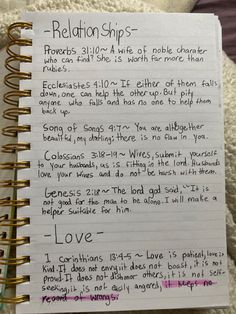 -RelationShips-
Proverbs 31:10~ A wife of noble charater
who can find? She is worth far more than
rubies.
Ecclesiastes 4:10~ If either of them falls
down, one can help the other up. But pity
anyone who falls and has no one to help them
back up.
Song of Songs 4:7~ You are altogether
beautiful, my darling; there is no flaw in you.
Colossians 3:18-19~ Wives, submit yourself
to your husbands, as is fitting in the lord. Husbands
love your wives and do not be harsh with them.
Genesis 2:18~ The lord god said, "It is
not good for the man to be along. I will make a
helper suitable for him.
-Love-
1 Corinthians 13:4-5~ Love is patient, love is
kind. It does not envy, it does not boast, it is not
proud. It does not dishonor others, it is not self-
seeking, it is not easily angered, it keeps no
record of wrongs.